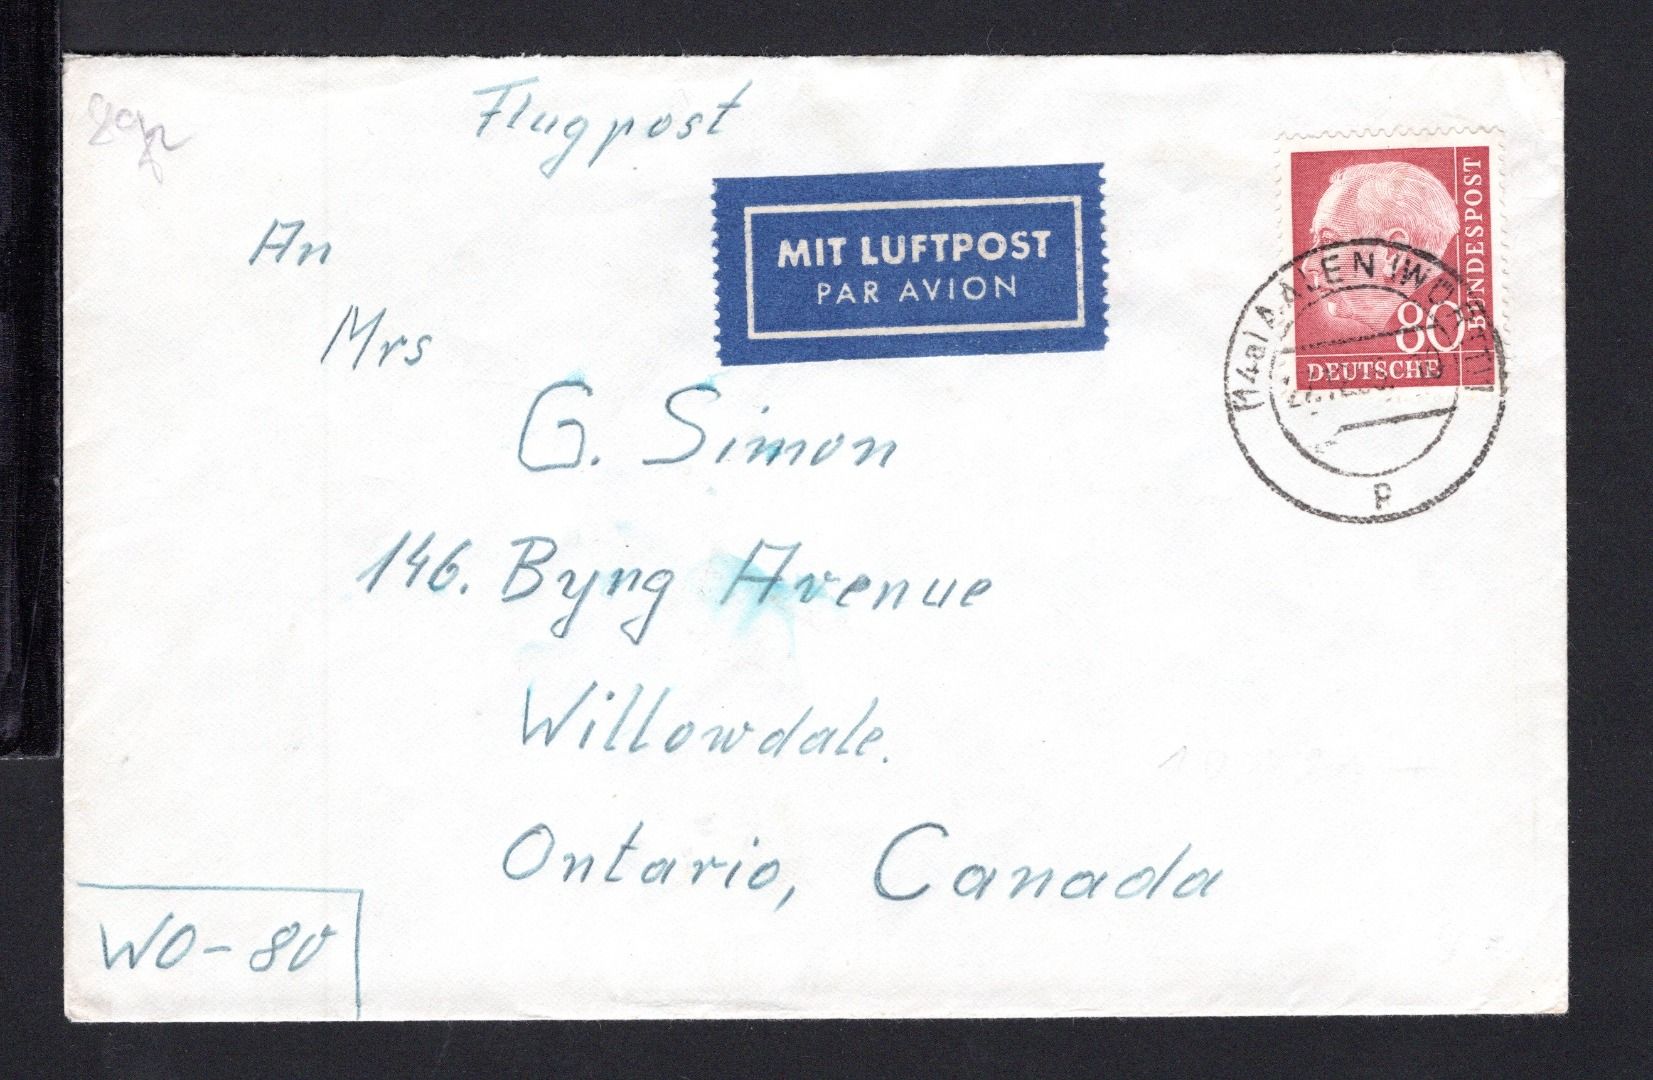 Flugpost
An
Mrs
G. Simon
146. Byng Avenue
Willowdale.
Ontario, Canada
WO-80
MIT LUFTPOST
PAR AVION
BUNDESPOST
80
DEUTSCHE
(14a) AALEN (WÜRTT)
p